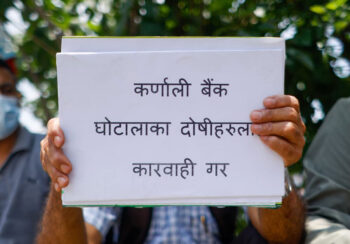 कर्णाली बैंक
घोटालाका दोषीहरुला
कारवाही गर